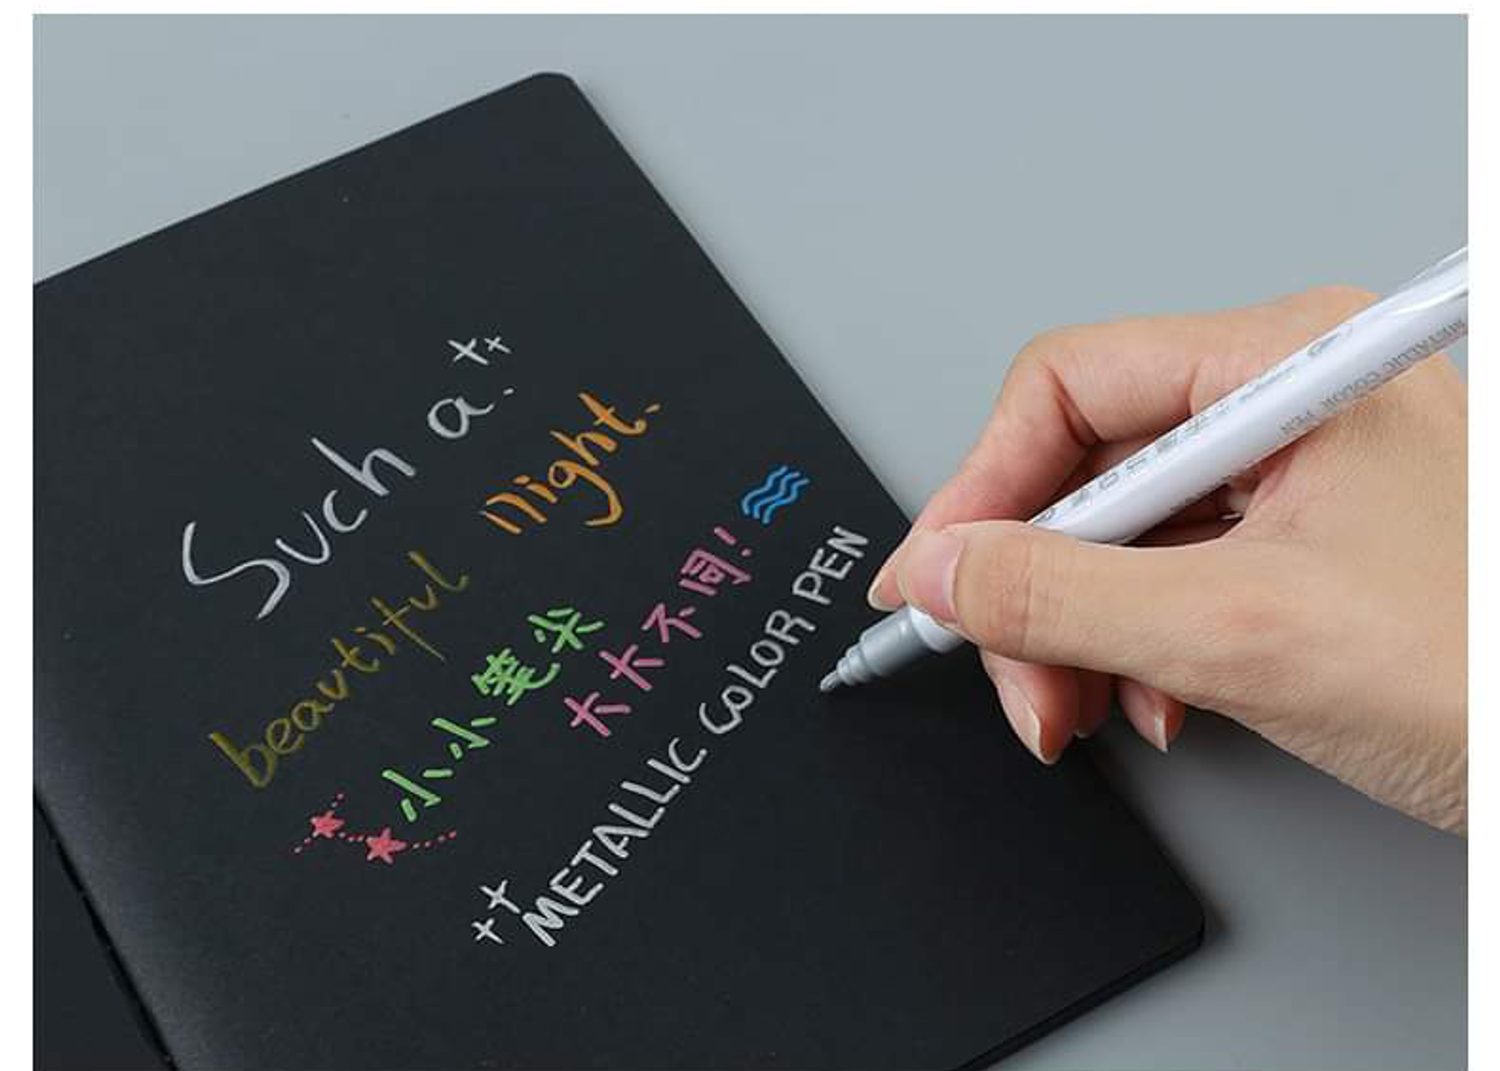 Such a.
beautiful night.
小小笔尖
大大不同!
METALLIC COLOR PEN
METALLIC COLOR PEN